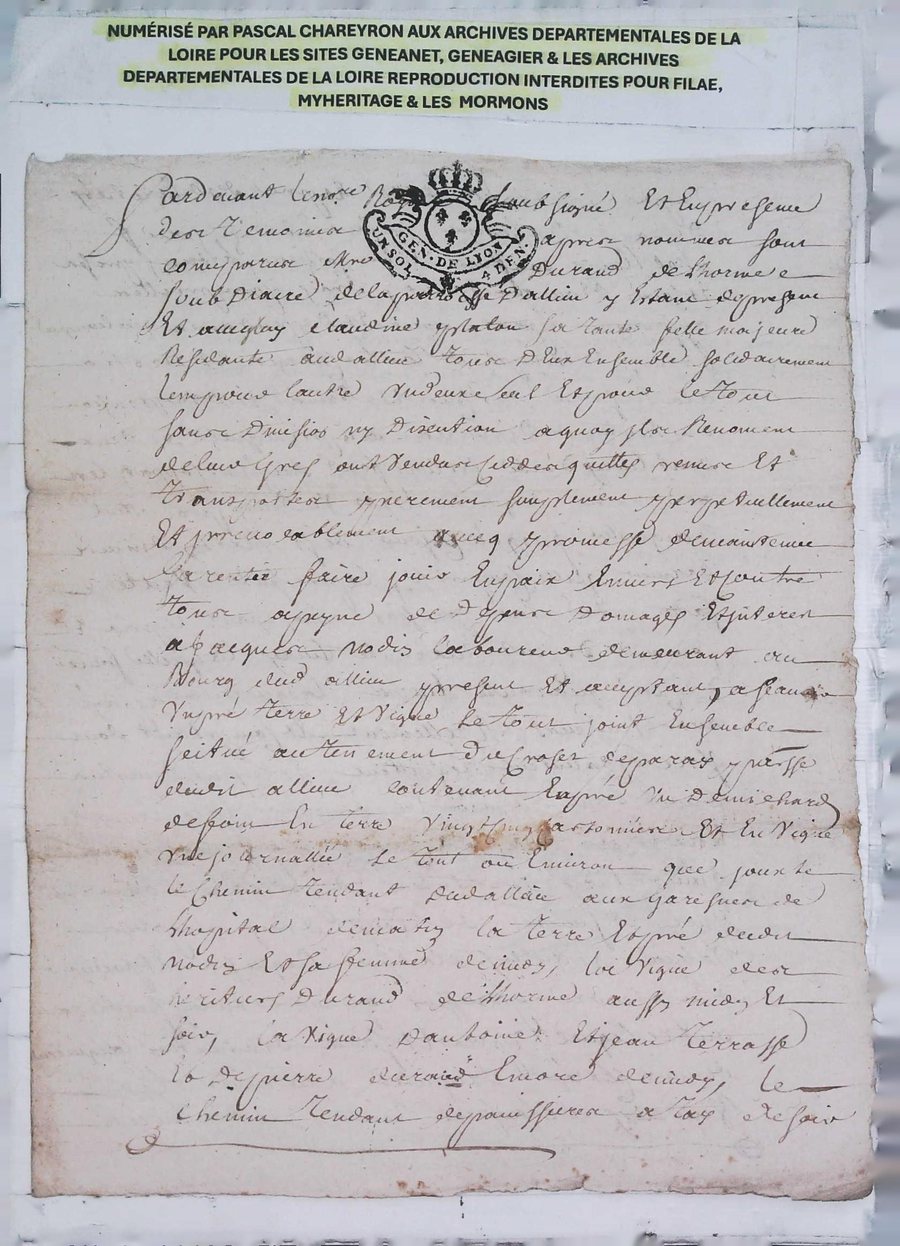 NUMÉRISÉ PAR PASCAL CHAREYRON AUX ARCHIVES DEPARTEMENTALES DE LA
LOIRE POUR LES SITES GENEANET, GENEAGIER & LES ARCHIVES
DEPARTEMENTALES DE LA LOIRE REPRODUCTION INTERDITES POUR FILAE,
MYHERITAGE & LES MORMONS
Pardevant le nore soubsigné Et En presence
des temoins apres nommes sont
comparus Mre Durand de Lhorme
GEN. DE LYON
UN SOL 4 DEN.
soubdiacre de la parroisse dallieu y Estant de present
Et claudine platon sa tante fille majeure
Residante aud allieu tous deux Ensemble solidairement
lun pour lautre un deux seul Et pour le tout
sans Division ny Disention a quoy ils Renoncent
de leur gres ont vendus ceddes quittes remis Et
transportes purement simplement perpetuellement
Et irrevocablement avecq promesse de maintenir
Garentir faire jouir En paix Envers Et contre
tous a peyne de Depens Domages Et interest
a Jacques nodin laboureur demeurant au
Bourg dud allieu present Et acceptant, a scavoir
Un pré terre Et vigne le tout joint Ensemble
scitué au tenement Du Croset de parrsse
dudit allieu contenant En pré un demi chard
de foin En terre vingt cinq cartonnées Et En vigne
une journallée le tout ou Environ que jouxte
le Chemin tendant dudallieu aux de
lhopital de matin la terre Et pré dudit
nodin Et sa femme de midy, la vigne des
heritiers Durand de Lhorme aussy midy Et
soir, la vigne dantoine Et jean terrasse
Et de pierre durand Encore de midy, le
Chemin tendant de a de soir